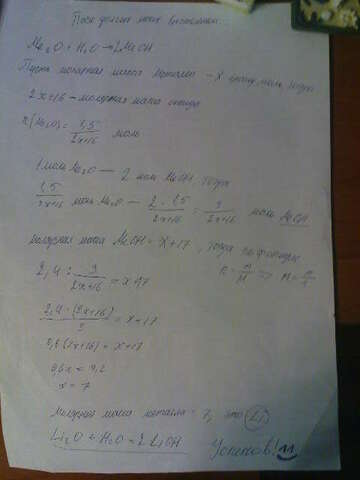 После долгих моих
Me₂O + H₂O → 2MeOH
Пусть молярная масса металла – x грамм/моль, тогда
2x+16 – молярная масса оксида
n(Me₂O) = 1,5/(2x+16) моль
1 моль Me₂O — 2 моль MeOH, тогда
1,5/(2x+16) моль Me₂O — 2·1,5/(2x+16) = 3/(2x+16) моль MeOH
Молярная масса MeOH = x+17, тогда по формуле
n = m/M => M = m/n
2,4 : 3/(2x+16) = x+17
2,4·(2x+16)/3 = x+17
0,8(2x+16) = x+17
0,6x = 4,2
x = 7
Молярная масса металла = 7, это Li
Li₂O + H₂O = 2LiOH
Успехов!